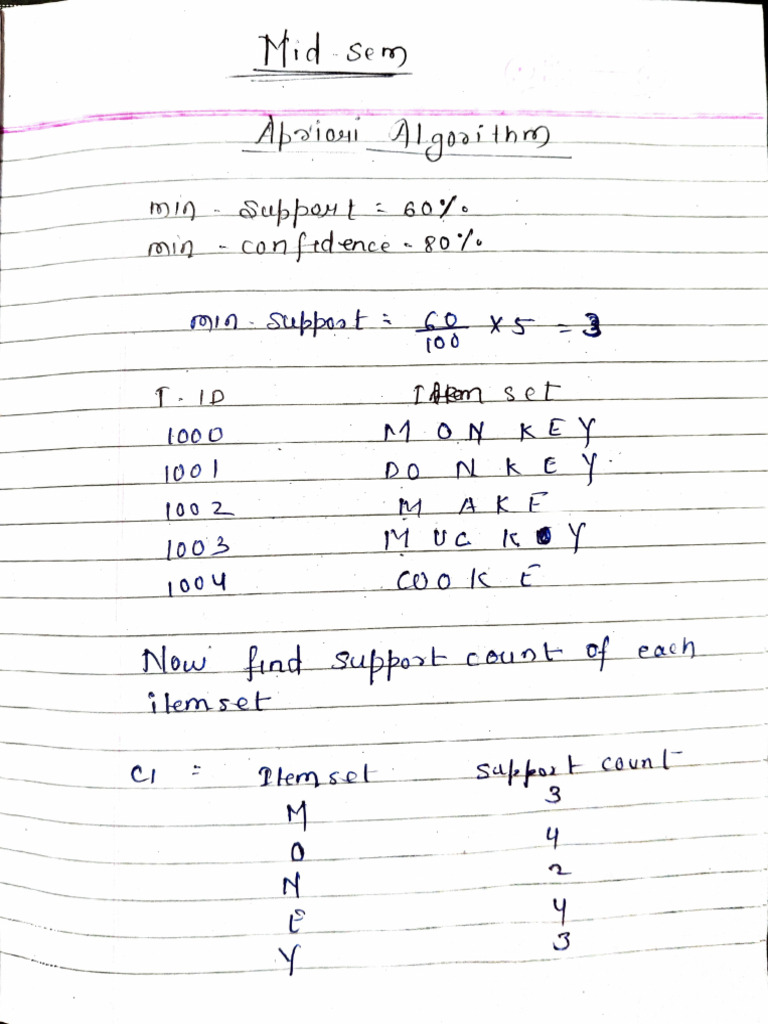 Mid-sem
Apriori Algorithm
min - support = 60%.
min - confidence - 80%.
min - support = 60/100 x 5 = 3
T - ID Item set
1000 M O N K E Y
1001 D O N K E Y
1002 M A K E
1003 M U C K Y
1004 C O O K E
Now find support count of each
itemset
C1 = Itemset support count
M 3
O 4
N 2
E 4
Y 3